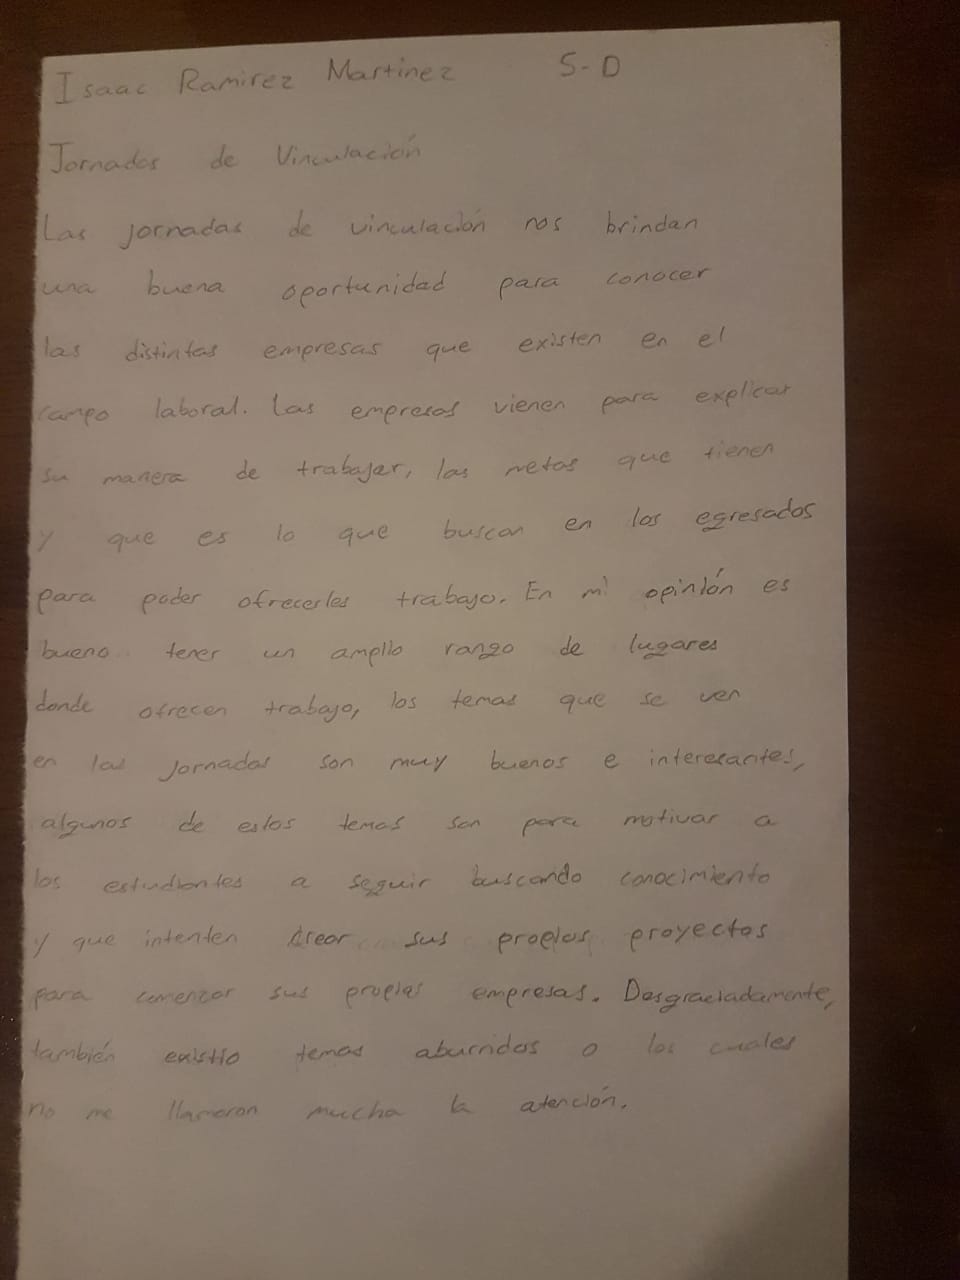 Isaac Ramirez Martinez 5-D
Jornadas de Vinculación
Las jornadas de vinculación nos brindan
una buena oportunidad para conocer
las distintas empresas que existen en el
campo laboral. Las empresas vienen para explicar
su manera de trabajar, las metas que tienen
y que es lo que buscan en los egresados
para poder ofrecerles trabajo. En mi opinión es
bueno tener un amplio rango de lugares
donde ofrecen trabajo, los temas que se ven
en las jornadas son muy buenos e interesantes,
algunos de estos temas son para motivar a
los estudiantes a seguir buscando conocimiento
y que intenten crear sus propios proyectos
para comenzar sus propias empresas. Desgraciadamente,
también existio temas aburridos o los cuales
no me llamaron mucha la atención.